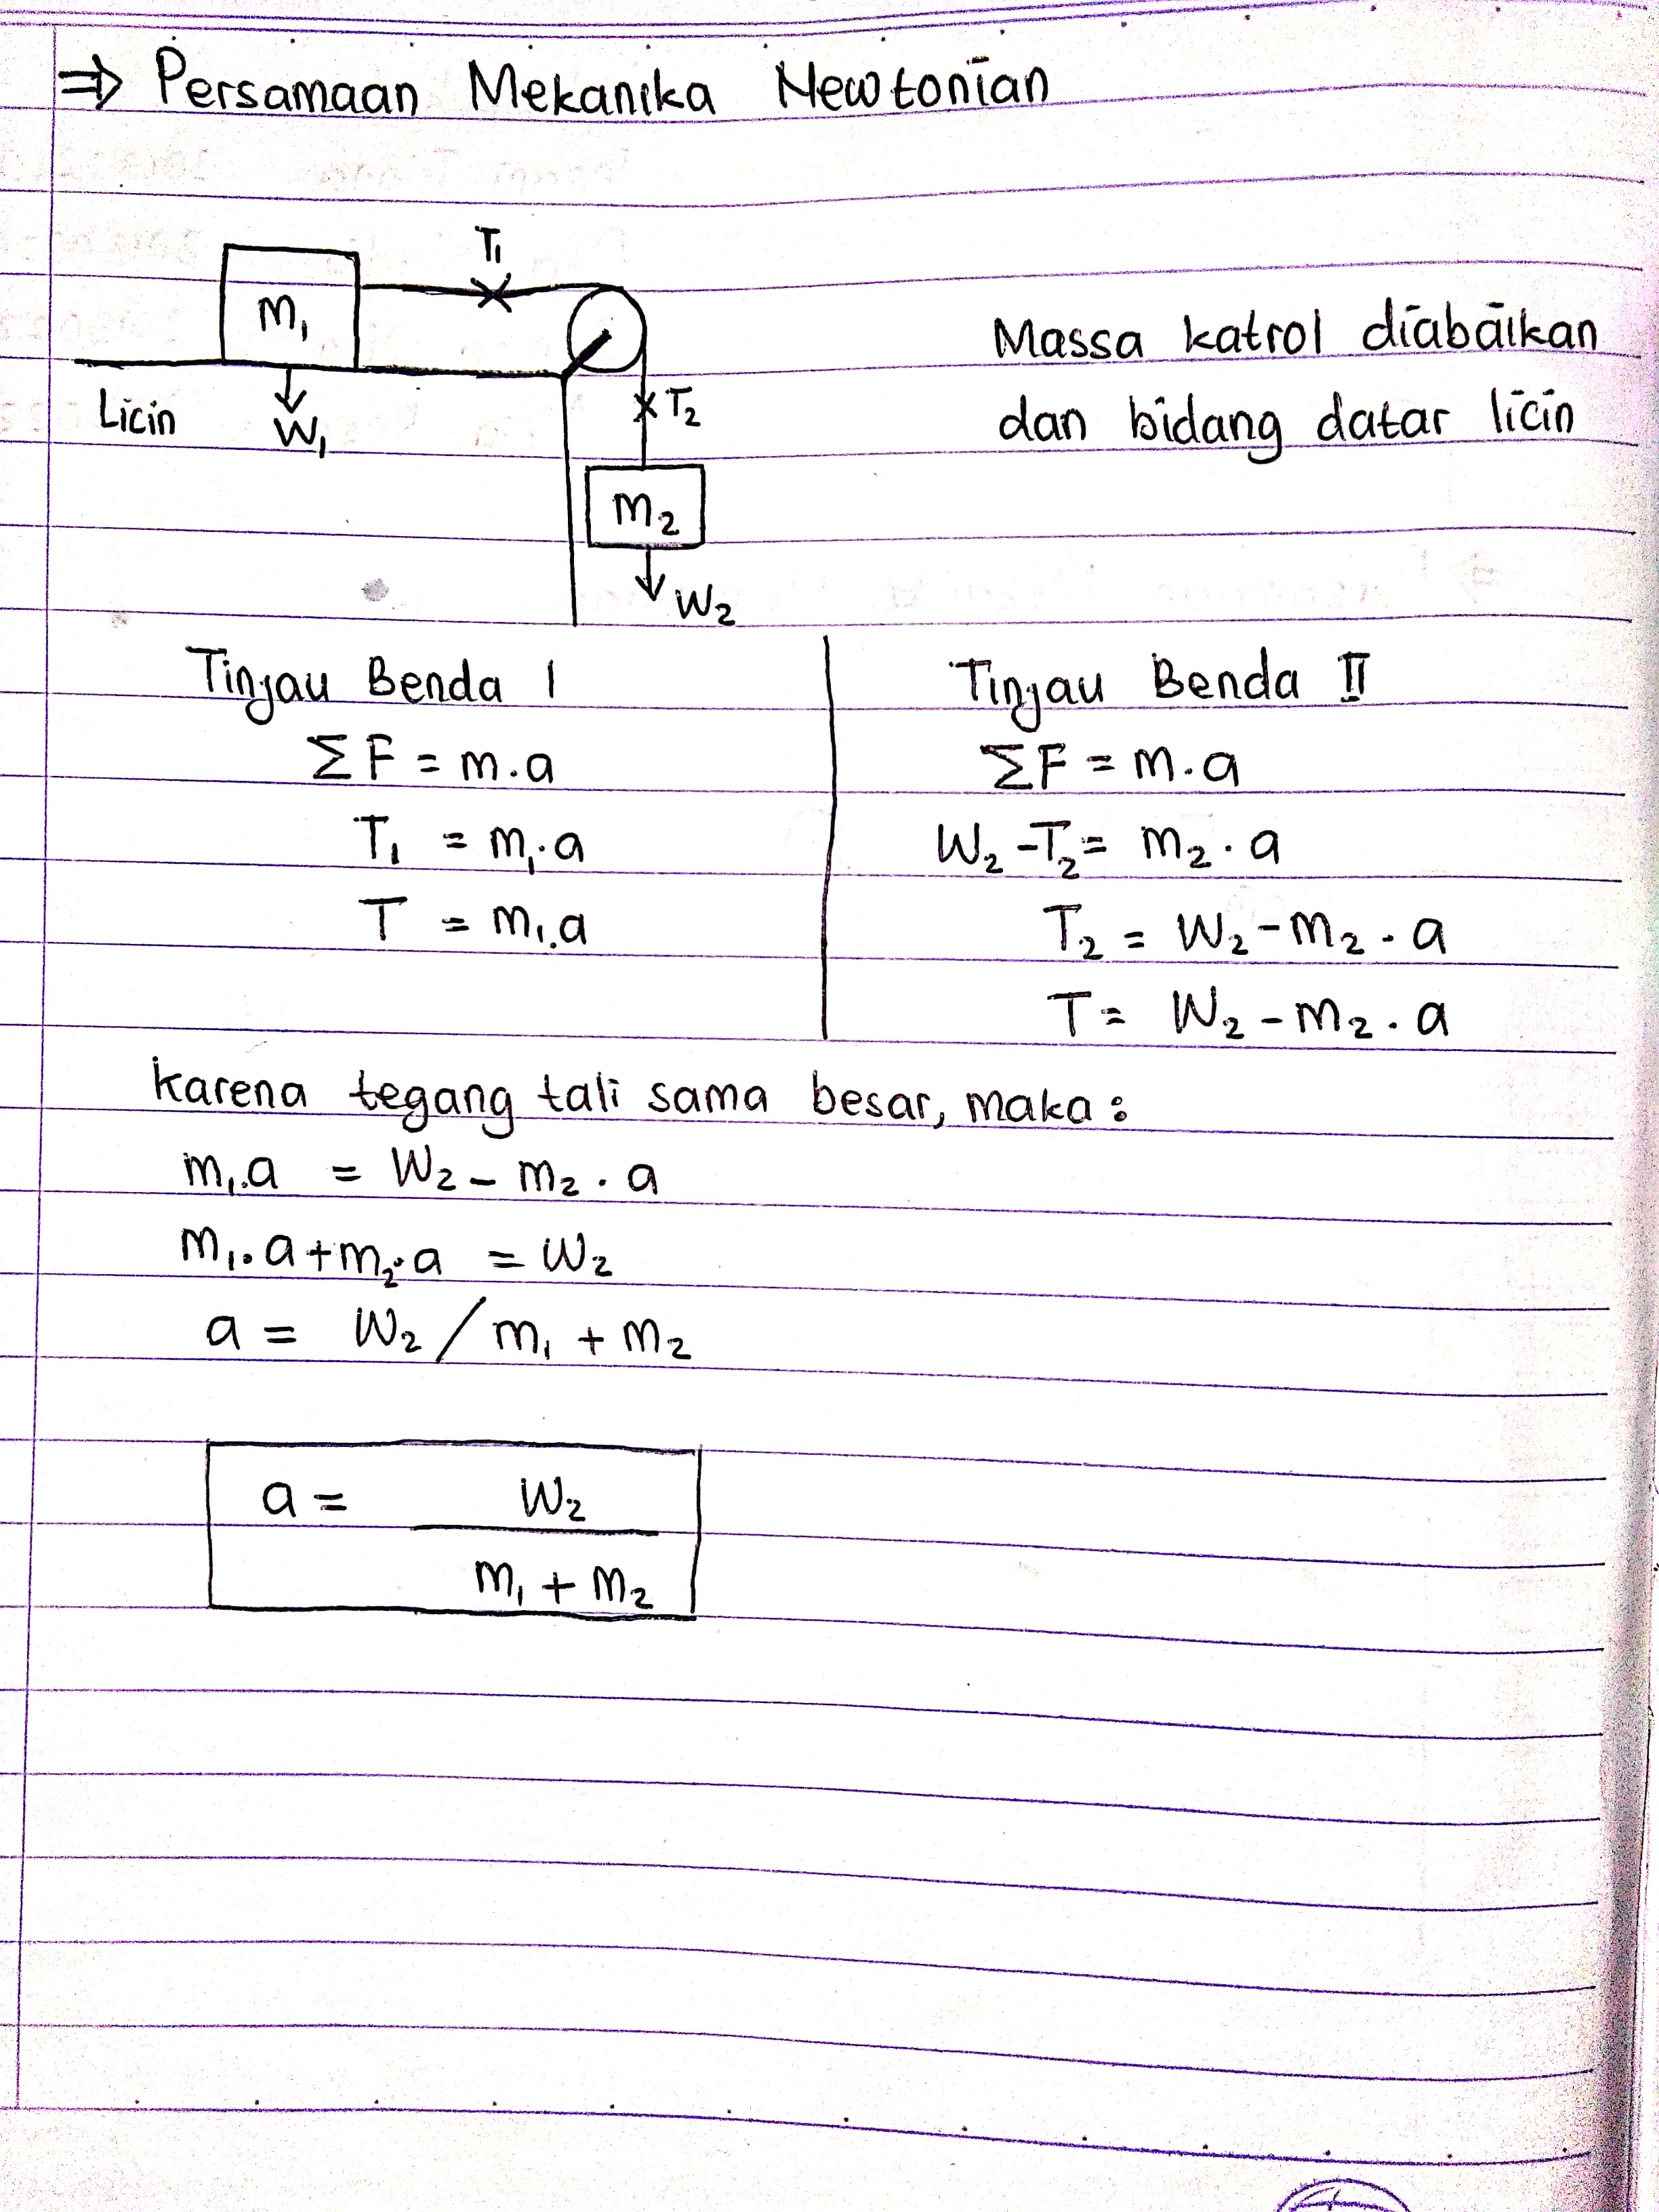 ⇒ Persamaan Mekanika Newtonian
T₁
m₁
Massa katrol diabaikan
Licin
W₁
T₂
dan bidang datar licin
m₂
W₂
Tinjau Benda I
ΣF = m.a
T₁ = m₁.a
T = m₁.a
Tinjau Benda II
ΣF = m.a
W₂ - T₂ = m₂ . a
T₂ = W₂ - m₂ . a
T = W₂ - m₂ . a
karena tegang tali sama besar, maka :
m₁.a = W₂ - m₂ . a
m₁.a + m₂.a = W₂
a = W₂ / m₁ + m₂
a = W₂
m₁ + m₂